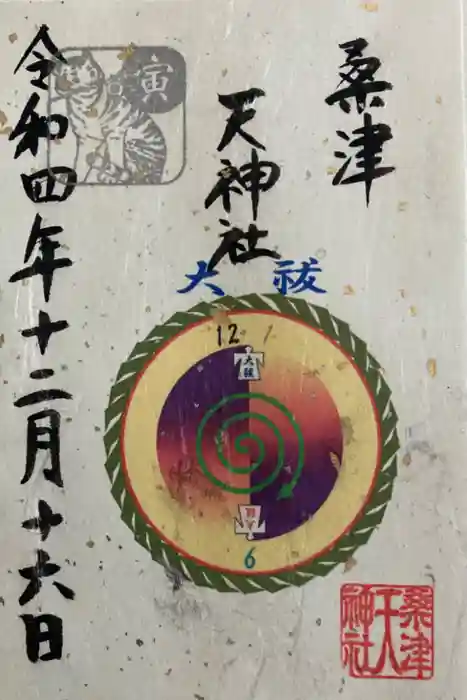 桑津
天神社
令和四年十二月十六日
寅
大祓
12
大祓
6
桑津
天
神社